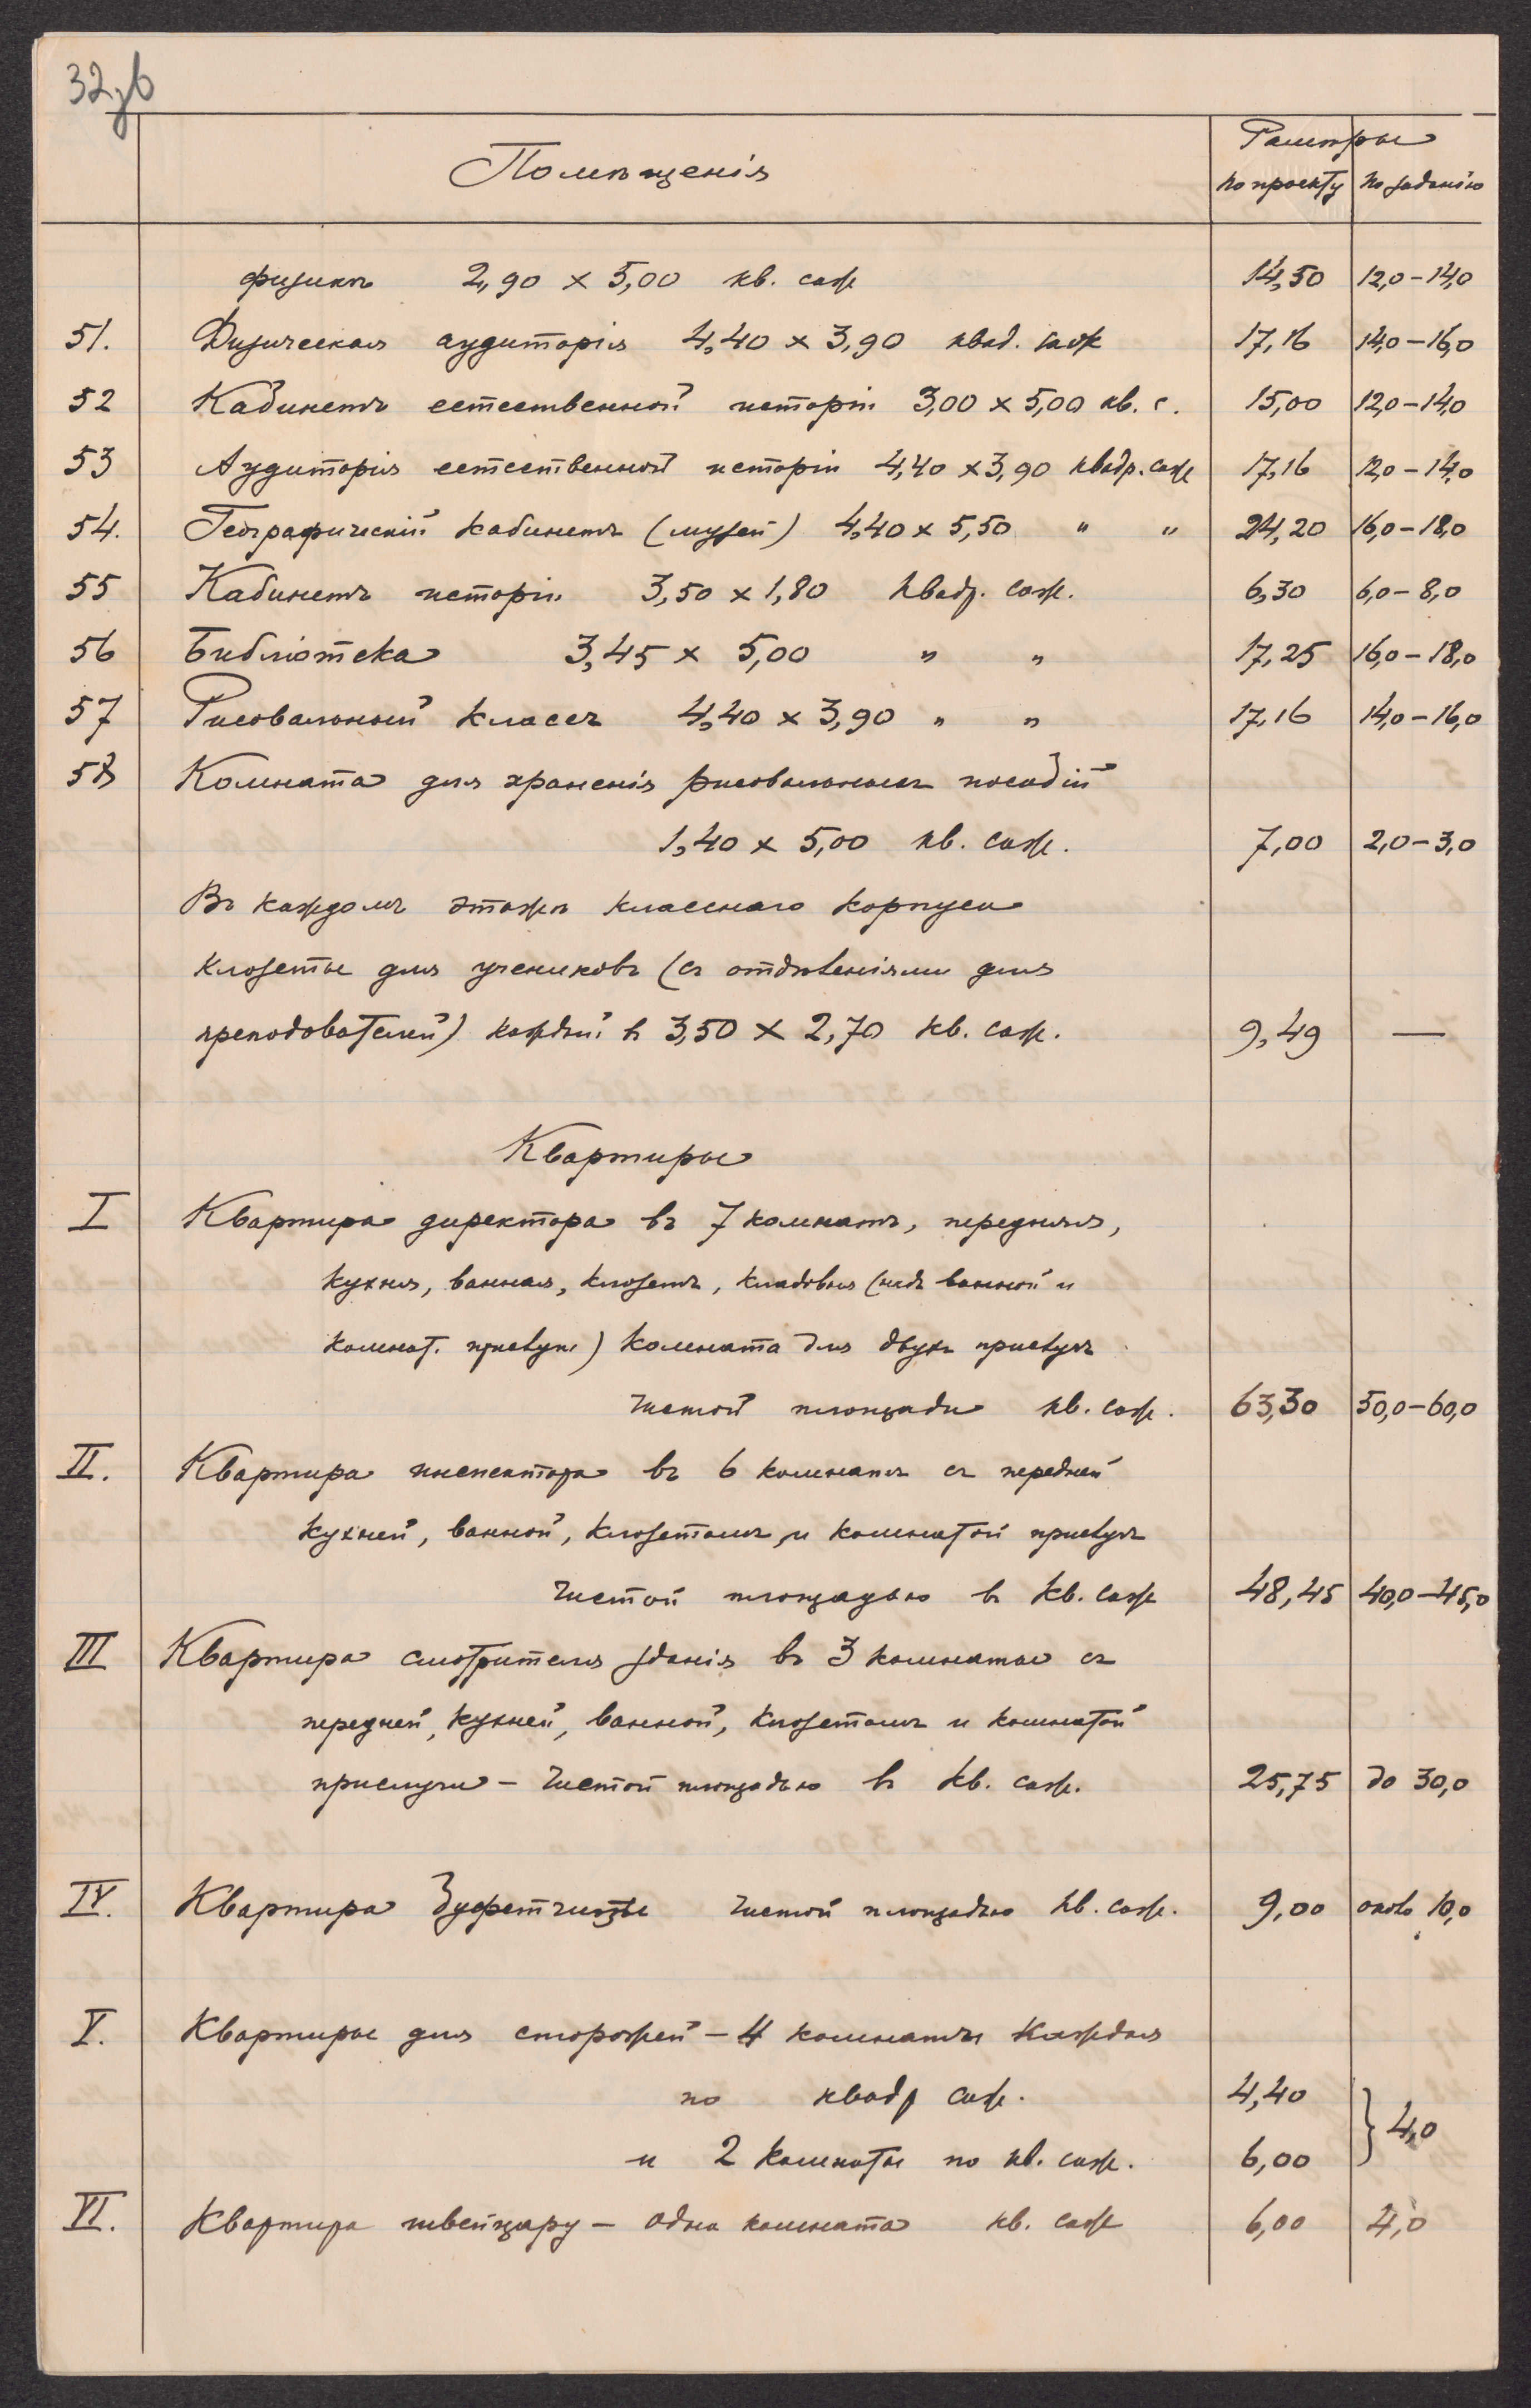 32
Помѣщенія
Размѣры
по проекту по заданію
физики 2,90 × 5,00 кв. саж 14,50 12,0-14,0
51. Физическая аудиторія 4,40 × 3,90 квад. саж 17,16 14,0-16,0
52 Кабинетъ естественной исторіи 3,00 × 5,00 кв. с. 15,00 12,0-14,0
53 Аудиторія естественной исторіи 4,40 × 3,90 квадр. саж 17,16 12,0-14,0
54. Географическій кабинетъ (музей) 4,40 × 5,50 " " 24,20 16,0-18,0
55 Кабинетъ исторіи 3,50 × 1,80 квадр. саж. 6,30 6,0-8,0
56 Библіотека 3,45 × 5,00 " " 17,25 16,0-18,0
57 Рисовальный классъ 4,40 × 3,90 " " 17,16 14,0-16,0
58 Комната для храненія рисовальныхъ пособій
1,40 × 5,00 кв. саж. 7,00 2,0-3,0
Въ каждомъ этажѣ класснаго корпуса
клозеты для учениковъ (съ отдѣленіями для
преподователей) каждый в 3,50 × 2,70 кв. саж. 9,49 —
Квартиры
I Квартира директора въ 7 комнатъ, передняя,
кухня, ванная, клозетъ, кладовая (надъ ванной и
комнат. прислуги) комната для двухъ прислугъ
чистой площади кв. саж. 63,30 50,0-60,0
II. Квартира инспектора въ 6 комнатъ съ передней
кухней, ванной, клозетомъ, и комнатой прислугъ
чистой площадью в кв. саж 48,45 40,0-45,0
III Квартира смотрителя зданія въ 3 комнаты съ
передней, кухней, ванной, клозетомъ и комнатой
прислуги - чистой площадью в кв. саж. 25,75 до 30,0
IV. Квартира буфетчицы чистой площадью кв. саж. 9,00 около 10,0
V. Квартиры для сторожей - 4 комнаты каждая
по квадр саж. 4,40
} 4,0
и 2 комнаты по кв. саж. 6,00
VI. Квартира швейцару - одна комната кв. саж 6,00 4,0